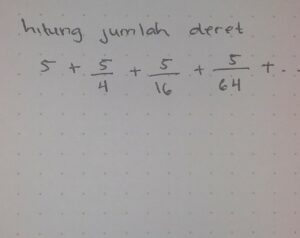 hitung jumlah deret
5 + 5/4 + 5/16 + 5/64 + ..